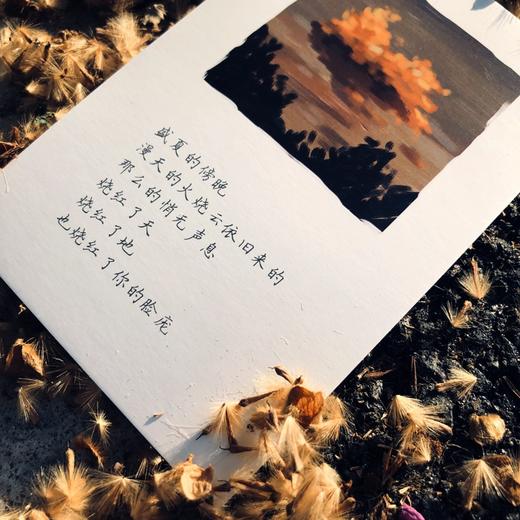 盛夏的傍晚
漫天的火烧云依旧来的
那么的悄无声息
烧红了天
烧红了地
也烧红了你的脸庞